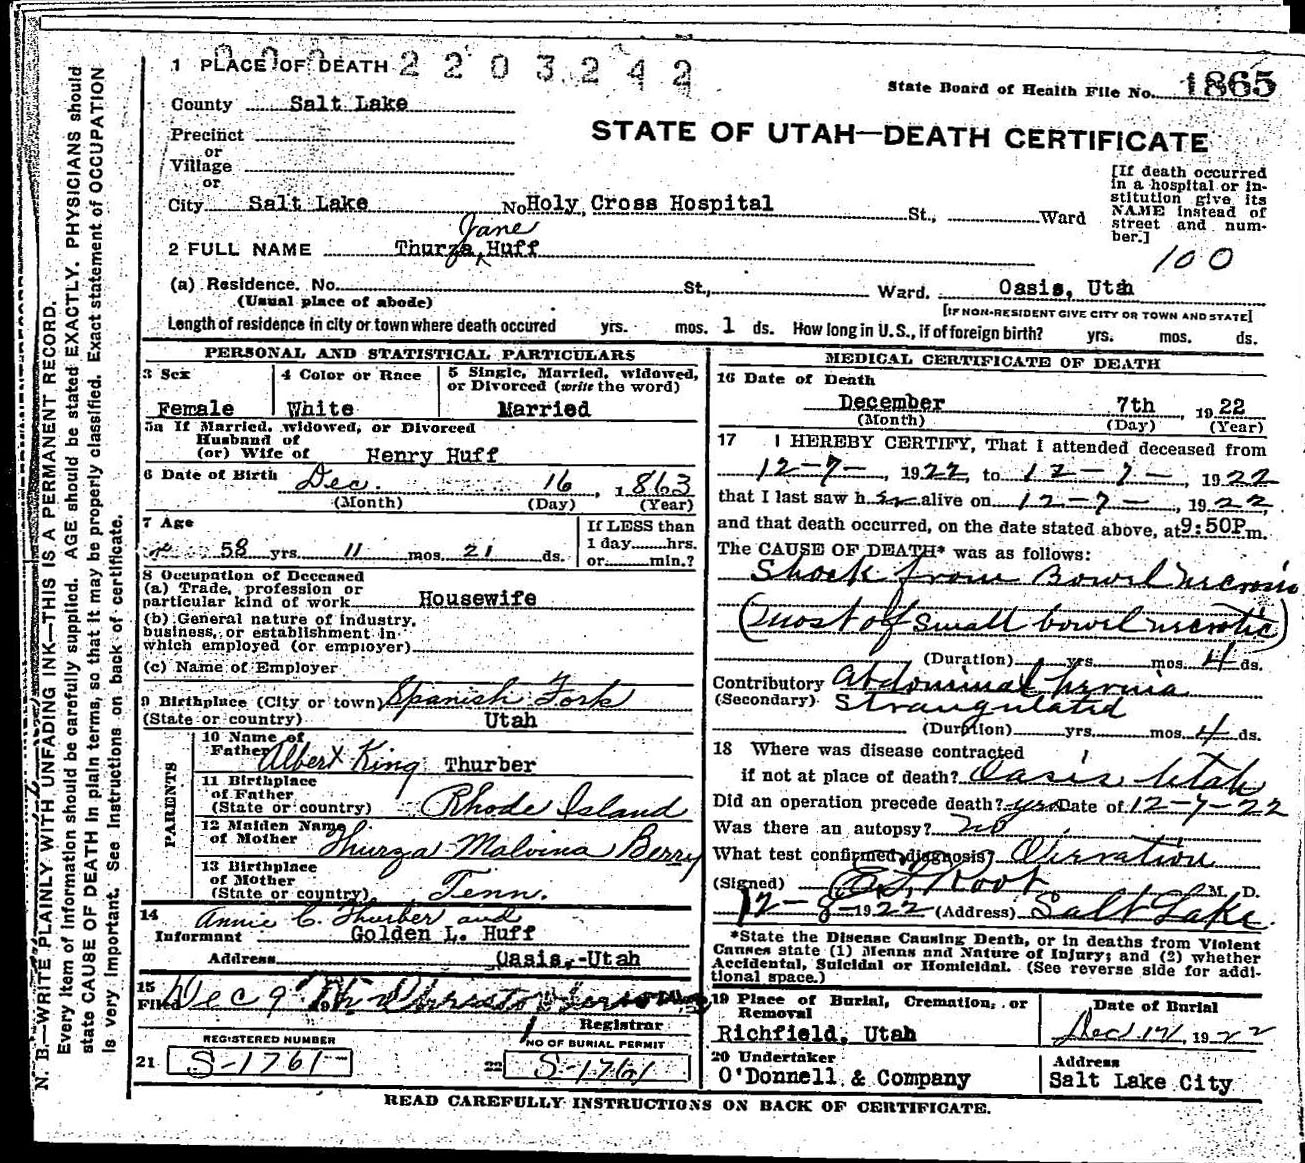 1 PLACE OF DEATH 2203242
State Board of Health File No. 1865
County Salt Lake
STATE OF UTAH—DEATH CERTIFICATE
Precinct
or
Village
or
City Salt Lake No Holy Cross Hospital St., Ward
[If death occurred in a hospital or institution give its NAME instead of street and number.]
Jane
2 FULL NAME Thurza Huff
100
(a) Residence. No. St., Ward. Oasis, Utah
(Usual place of abode) [IF NON-RESIDENT GIVE CITY OR TOWN AND STATE]
Length of residence in city or town where death occured yrs. mos. 1 ds. How long in U.S., if of foreign birth? yrs. mos. ds.
PERSONAL AND STATISTICAL PARTICULARS
3 Sex
Female
4 Color or Race
White
5 Single, Married, widowed, or Divorced (write the word)
Married
5a If Married, widowed, or Divorced
Husband of
(or) Wife of Henry Huff
6 Date of Birth Dec. 16, 1863
(Month) (Day) (Year)
7 Age
58 yrs. 11 mos. 21 ds.
If LESS than
1 day hrs.
or min.?
8 Occupation of Deceased
(a) Trade, profession or
particular kind of work Housewife
(b) General nature of industry,
business, or establishment in
which employed (or employer)
(c) Name of Employer
9 Birthplace (City or town) Spanish Fork
(State or country) Utah
PARENTS
10 Name of
Father Albert King Thurber
11 Birthplace
of Father
(State or country) Rhode Island
12 Maiden Name
of Mother Thurza Malvina Berry
13 Birthplace
of Mother
(State or country) Tenn.
14 Annie C. Thurber and
Informant Golden L. Huff
Address Oasis, -Utah
15
Filed Dec 9
Registrar
REGISTERED NUMBER
21 S-1761
NO OF BURIAL PERMIT
22 S-1761
MEDICAL CERTIFICATE OF DEATH
16 Date of Death
December 7th, 1922
(Month) (Day) (Year)
17 I HEREBY CERTIFY, That I attended deceased from
12-7-, 1922, to 12-7-, 1922
that I last saw her alive on 12-7-, 1922,
and that death occurred, on the date stated above, at 9:50P m.
The CAUSE OF DEATH* was as follows:
Shock from Bowel necrosis
(most of small bowel necrotic)
(Duration) yrs. mos. 4 ds.
Contributory Abdominal hernia
(Secondary) Strangulated
(Duration) yrs. mos. 4 ds.
18 Where was disease contracted
if not at place of death? Oasis Utah
Did an operation precede death? yes Date of 12-7-22
Was there an autopsy? no
What test confirmed diagnosis? Operation
(Signed) Root M. D.
12-8-1922 (Address) Salt Lake
*State the Disease Causing Death, or in deaths from Violent
Causes state (1) Means and Nature of Injury; and (2) whether
Accidental, Suicidal or Homicidal. (See reverse side for addi-
tional space.)
19 Place of Burial, Cremation, or
Removal
Richfield, Utah
Date of Burial
Dec 1922
20 Undertaker
O'Donnell & Company
Address
Salt Lake City
READ CAREFULLY INSTRUCTIONS ON BACK OF CERTIFICATE.
N. B.—WRITE PLAINLY WITH UNFADING INK—THIS IS A PERMANENT RECORD.
Every item of information should be carefully supplied. AGE should be stated EXACTLY. PHYSICIANS should
state CAUSE OF DEATH in plain terms, so that it may be properly classified. Exact statement of OCCUPATION
is very important. See instructions on back of certificate.